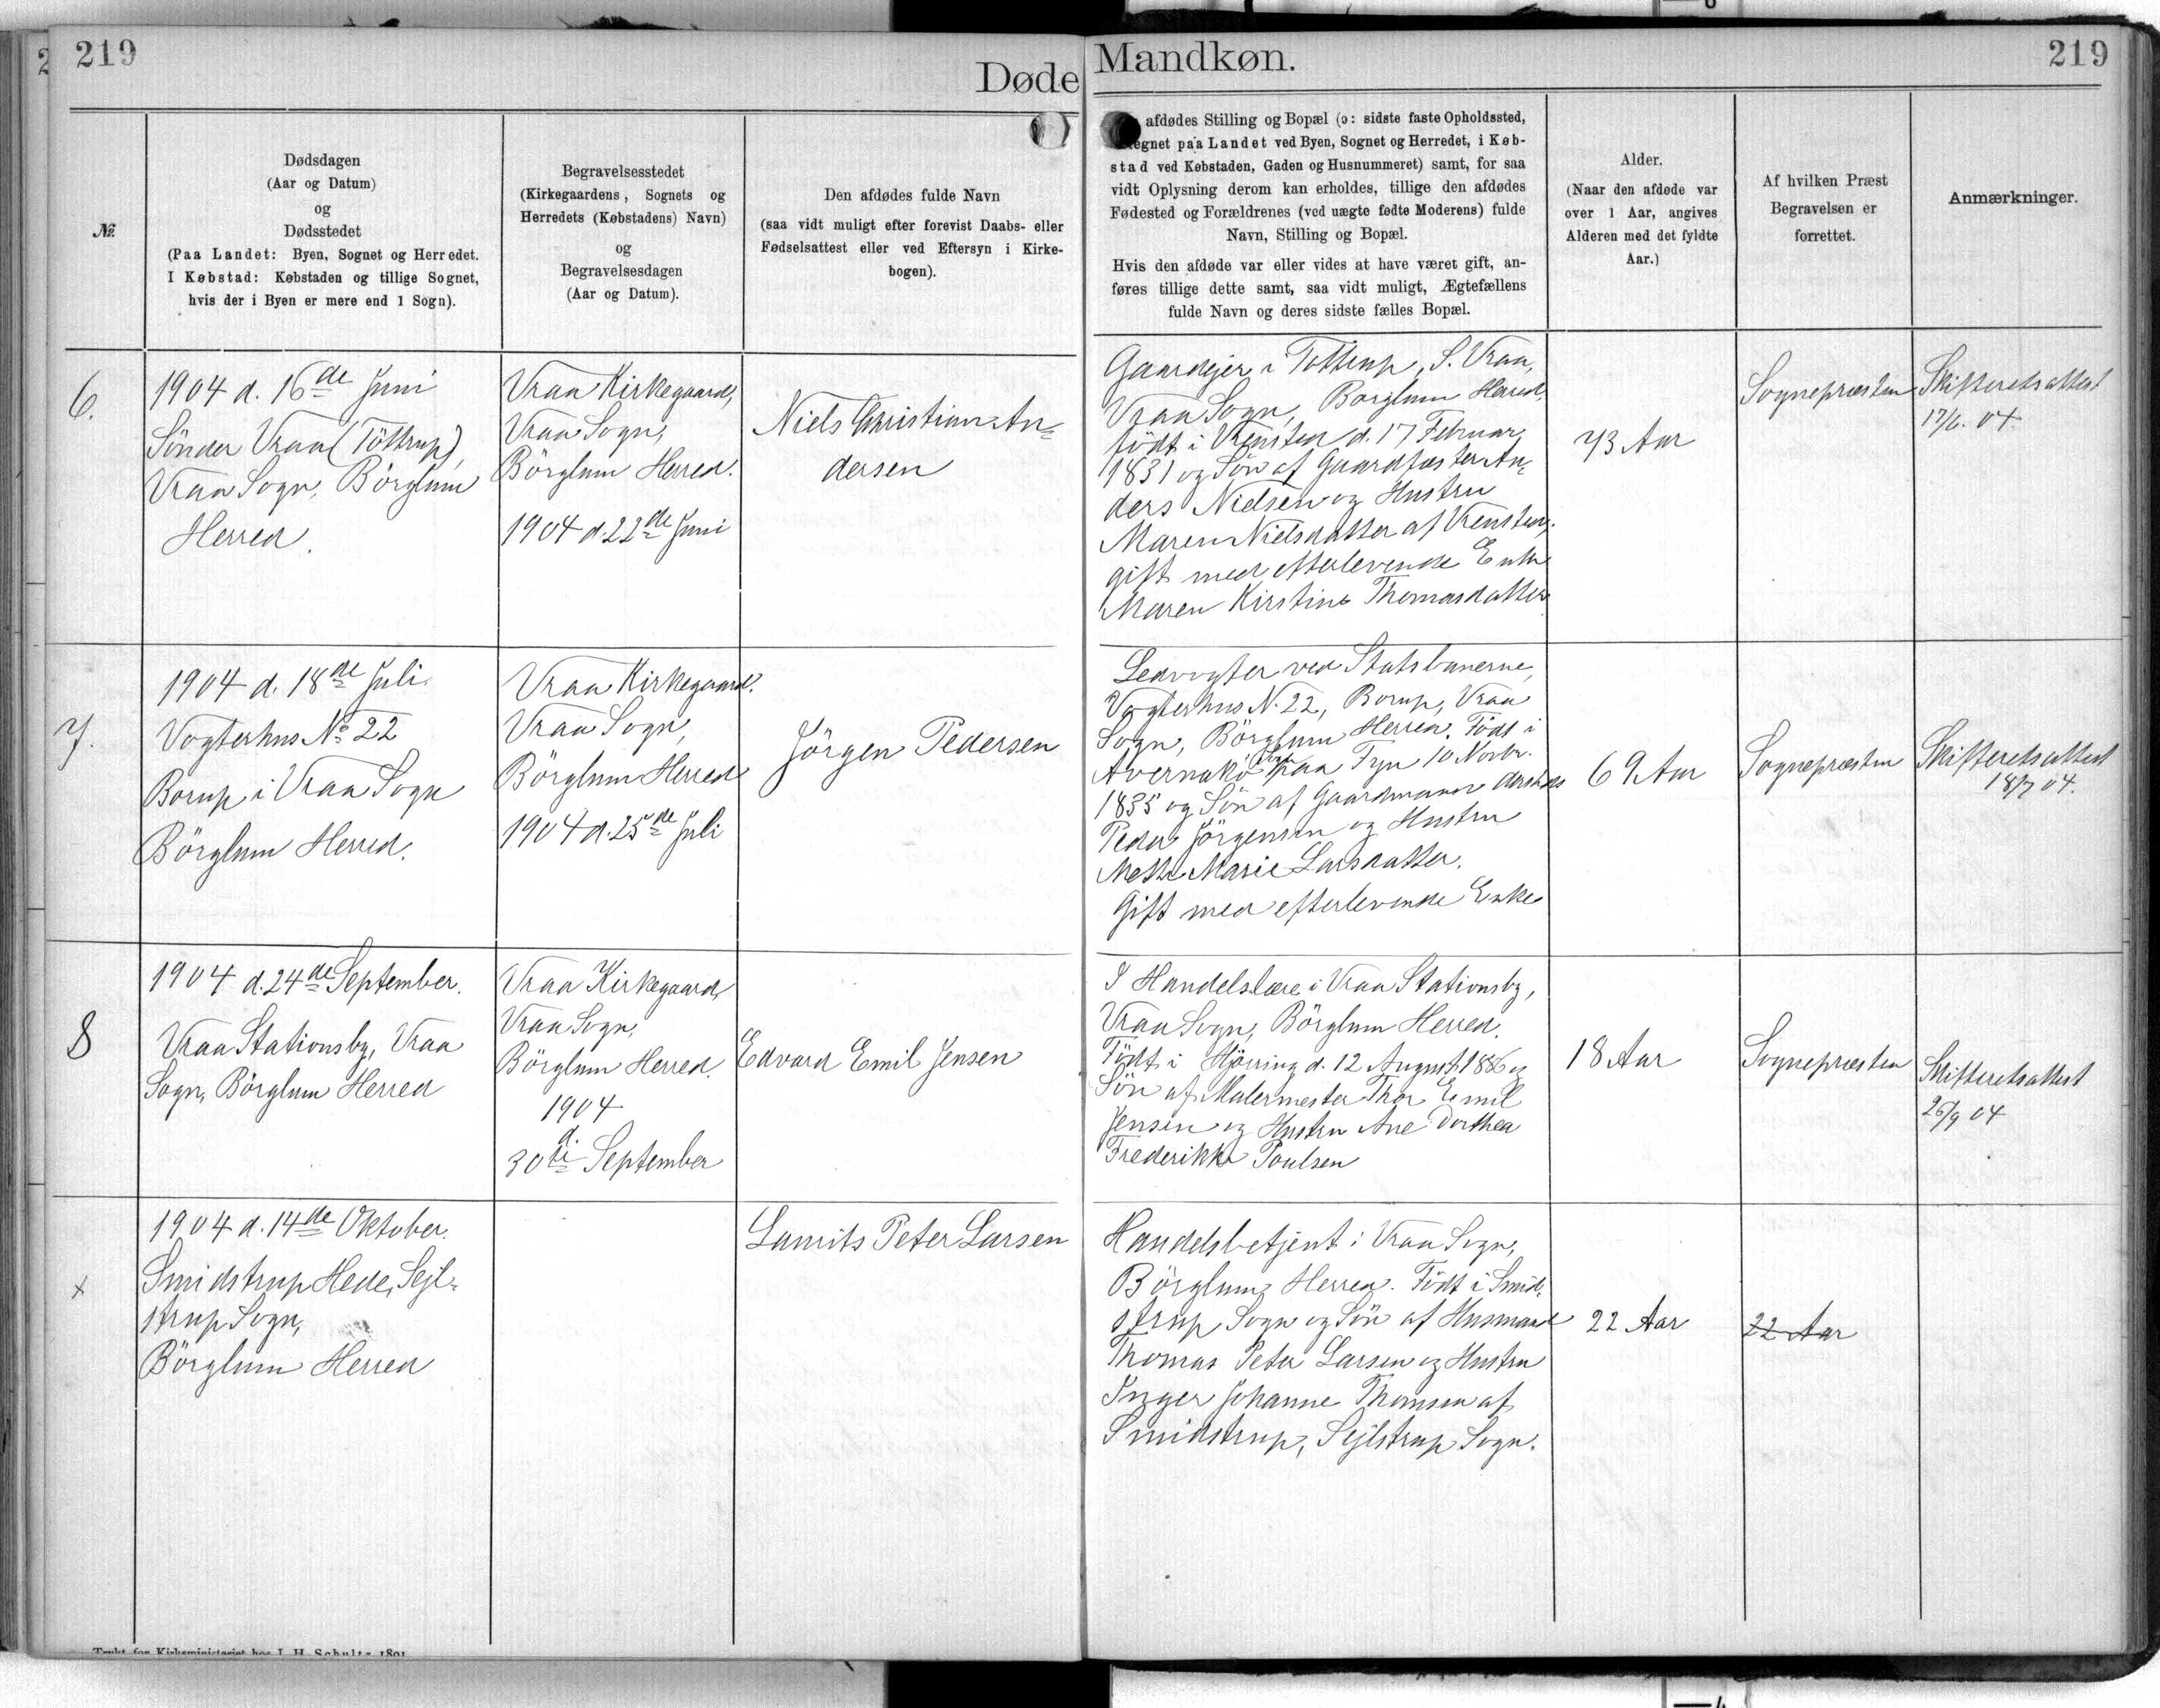 219
Døde
Mandkøn.
219
№.
Dødsdagen
(Aar og Datum)
og
Dødsstedet
(Paa Landet: Byen, Sognet og Herredet.
I Købstad: Købstaden og tillige Sognet,
hvis der i Byen er mere end 1 Sogn).
Begravelsesstedet
(Kirkegaardens, Sognets og
Herredets (Købstadens) Navn)
og
Begravelsesdagen
(Aar og Datum).
Den afdødes fulde Navn
(saa vidt muligt efter forevist Daabs- eller
Fødselsattest eller ved Eftersyn i Kirke-
bogen).
afdødes Stilling og Bopæl (ɔ: sidste faste Opholdssted,
paa Landet ved Byen, Sognet og Herredet, i Køb-
stad ved Købstaden, Gaden og Husnummeret) samt, for saa
vidt Oplysning derom kan erholdes, tillige den afdødes
Fødested og Forældrenes (ved uægte fødte Moderens) fulde
Navn, Stilling og Bopæl.
Hvis den afdøde var eller vides at have været gift, an-
føres tillige dette samt, saa vidt muligt, Ægtefællens
fulde Navn og deres sidste fælles Bopæl.
Alder.
(Naar den afdøde var
over 1 Aar, angives
Alderen med det fyldte
Aar.)
Af hvilken Præst
Begravelsen er
forrettet.
Anmærkninger.
6.
1904 d. 16de Juni
Sönder Vraa (Töttrup),
Vraa Sogn, Börglum
Herred.
Vraa Kirkegaard,
Vraa Sogn,
Börglum Herred.
1904 d. 22de Juni
Niels Christian An-
dersen
Gaardejer i Töttrup, S. Vraa,
Vraa Sogn, Börglum Hered,
födt i Vrensted d. 17 Februar
1831 og Sön af Gaardfæster An-
ders Nielsen og Hustru
Maren Nielsdatter af Vrensted,
gift med efterlevende Enke
Maren Kirstine Thomasdatter
73 Aar
Sognepræsten
Skifteretsattest
17/6. 04.
7.
1904 d. 18de Juli.
Vogterhus No 22
Borup i Vraa Sogn
Börglum Herred.
Vraa Kirkegaard.
Vraa Sogn,
Börglum Herred
1904 d. 25de Juli
Jörgen Pedersen
Ledvogter ved Statsbanerne,
Vogterhus N. 22, Borup, Vraa
Sogn, Börglum Herred. Födt i
Avernakö Sogn paa Fyn 10 Novbr.
1835 og Sön af Gaardmand dersteds
Peder Jörgensen og Hustru
Mette Marie Larsdatter.
Gift med efterlevende Enke
69 Aar
Sognepræsten
Skifteretsattest
18/7 04.
8
1904 d. 24de September.
Vraa Stationsby, Vraa
Sogn, Börglum Herred
Vraa Kirkegaard,
Vraa Sogn,
Börglum Herred.
1904
d.
30te September
Edvard Emil Jensen
I Handelslære i Vraa Stationsby,
Vraa Sogn, Börglum Herred.
Födt i Hjörring d. 12 August 1886 og
Sön af Malermester Thor Emil
Jensen og Hustru Ane Dorthea
Frederikke Poulsen
18 Aar
Sognepræsten
Skifteretsattest
26/9 04
x
1904 d. 14de Oktober.
Smidstrup Hede, Sejl-
strup Sogn,
Börglum Herred
Laurits Peter Larsen
Handelsbetjent i Vraa Sogn,
Börglum Herred. Födt i Smid-
strup Sogn og Sön af Husmand
Thomas Peter Larsen og Hustru
Inger Johanne Thomsen af
Smidstrup, Sejlstrup Sogn.
22 Aar
22 Aar
Trykt for Kirkeministeriet hos J. H. Schultz 1891